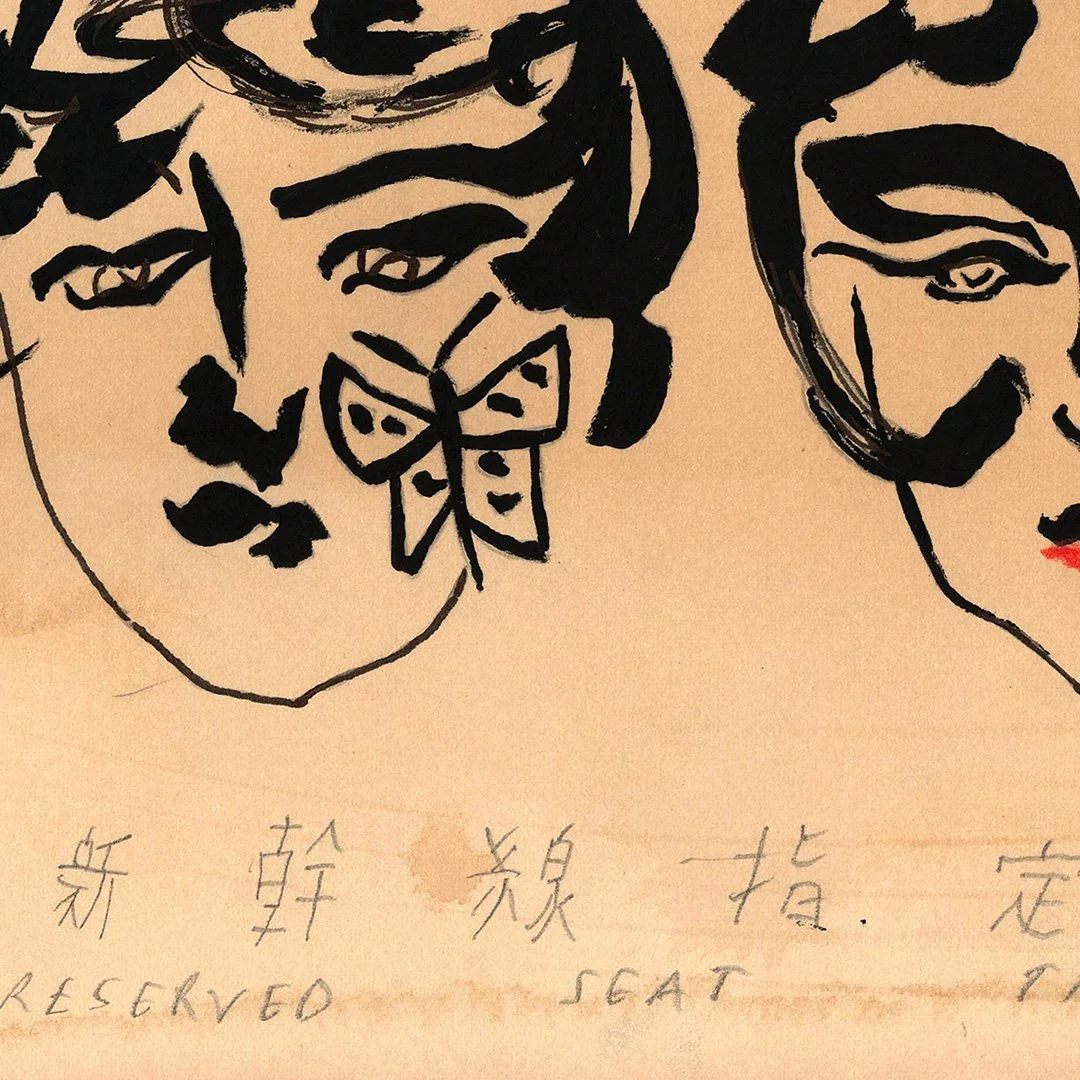 新幹線指定
RESERVED SEAT